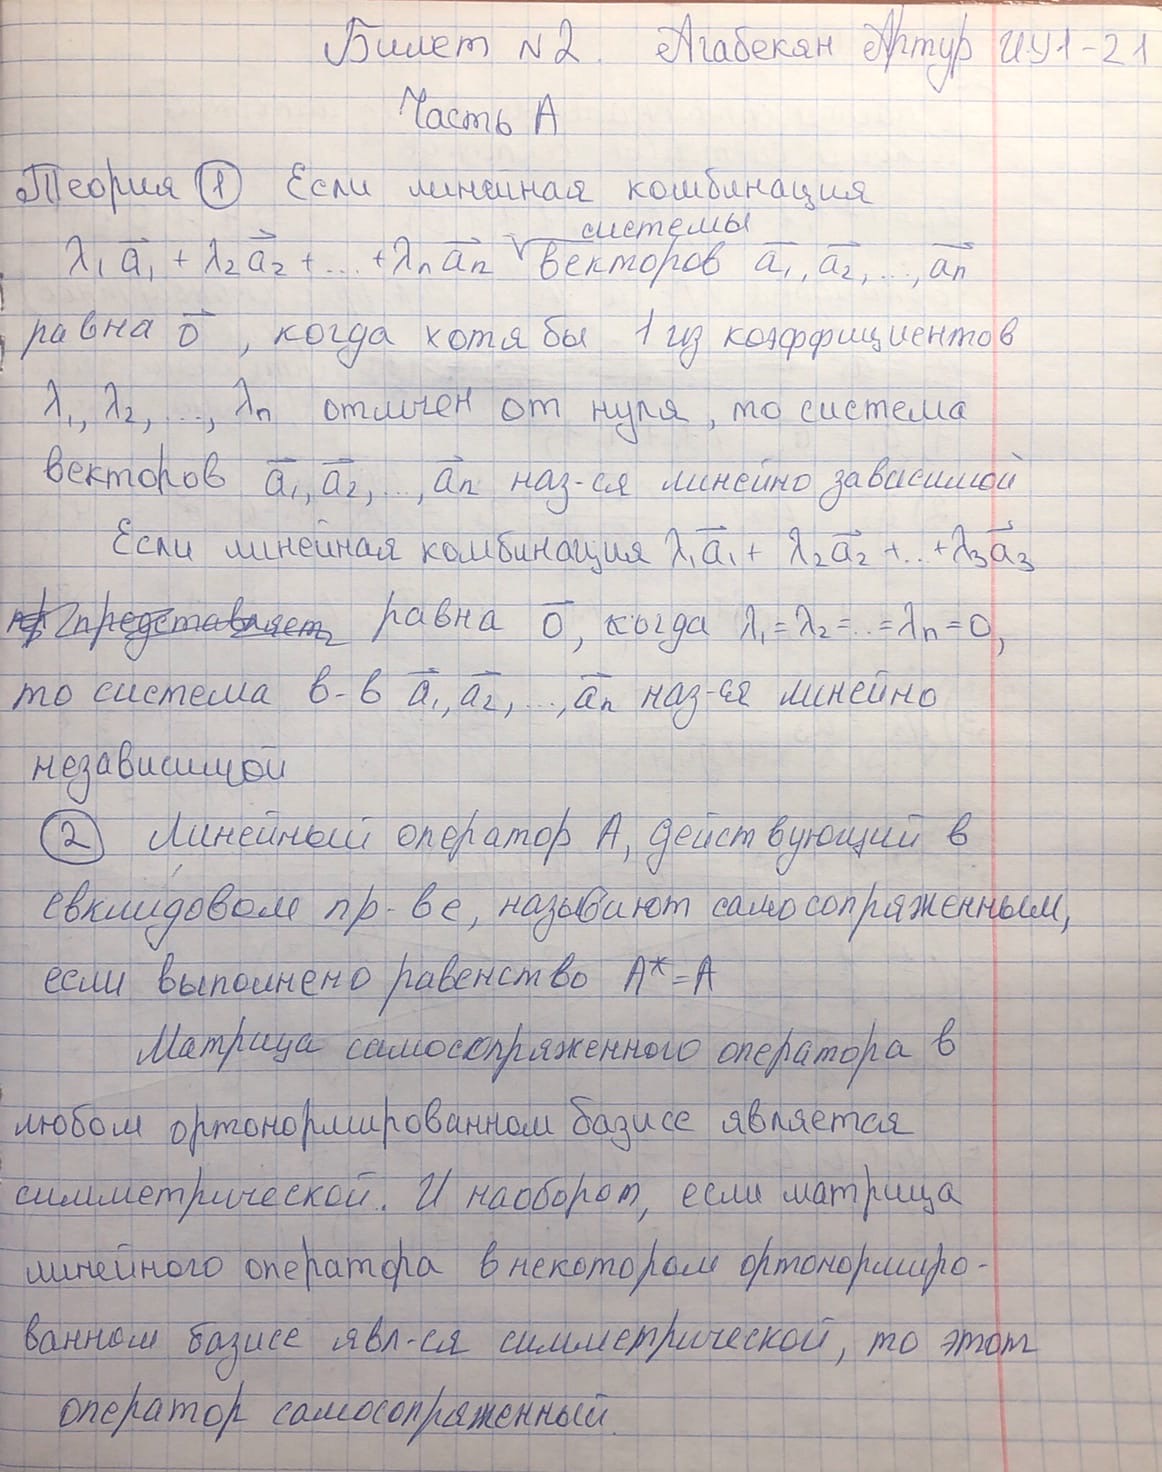 Билет №2. Агабекян Артур ИУ1-21
Часть А
Теория ① Если линейная комбинация
системы
λ₁a⃗₁ + λ₂a⃗₂ + ... + λₙa⃗ₙ √ векторов a⃗₁, a⃗₂, ..., a⃗ₙ
равна 0⃗, когда хотя бы 1 из коэффициентов
λ₁, λ₂, ..., λₙ отличен от нуля, то система
векторов a⃗₁, a⃗₂, ..., a⃗ₙ наз-ся линейно зависимой
Если линейная комбинация λ₁a⃗₁ + λ₂a⃗₂ + .. + λ₃a⃗₃
представляет равна 0⃗, когда λ₁ = λ₂ = .. = λₙ = 0,
то система в-в a⃗₁, a⃗₂, ..., a⃗ₙ наз-ся линейно
независимой
② Линейный оператор А, действующий в
евклидовом пр-ве, называют самосопряженным,
если выполнено равенство А* = А
Матрица самосопряженного оператора в
любом ортонормированном базисе является
симметрической. И наоборот, если матрица
линейного оператора в некотором ортонормиро-
ванном базисе явл-ся симметрической, то этот
оператор самосопряженный.